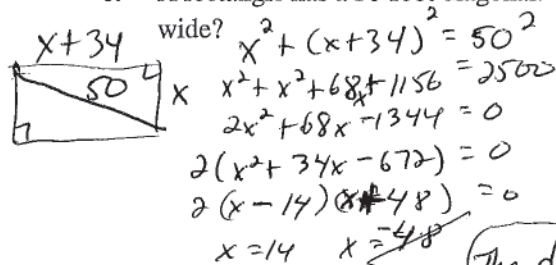 wide?
x+34
50
x
x² + (x+34)² = 50²
x² + x² + 68x + 1156 = 2500
2x² + 68x - 1344 = 0
2(x² + 34x - 672) = 0
2(x - 14)(x + 48) = 0
x = 14 x = -48
The